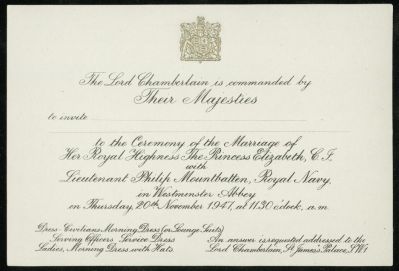 The Lord Chamberlain is commanded by
Their Majesties
to invite
to the Ceremony of the Marriage of
Her Royal Highness The Princess Elizabeth, C.I.
with
Lieutenant Philip Mountbatten, Royal Navy,
in Westminster Abbey
on Thursday, 20th November 1947, at 11.30 o'clock, a.m.
Dress: Civilians, Morning Dress (or Lounge Suits)
Serving Officers, Service Dress
Ladies, Morning Dress with Hats
An answer is requested addressed to the
Lord Chamberlain, St James's Palace, S.W.1